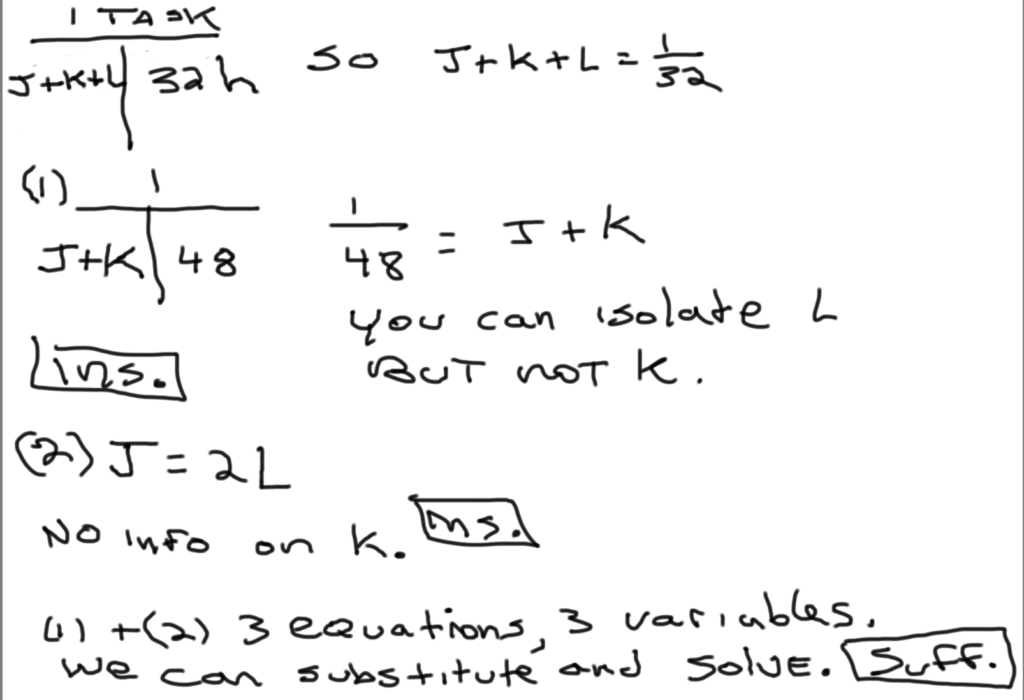 1 TASK
J+K+L | 32h so J+K+L = 1/32
(1) 1
J+K | 48 1/48 = J+K
you can isolate L
BUT NOT K.
ins.
(2) J = 2L
NO info on K. ins.
(1) +(2) 3 equations, 3 variables.
we can substitute and SOLVE. Suff.